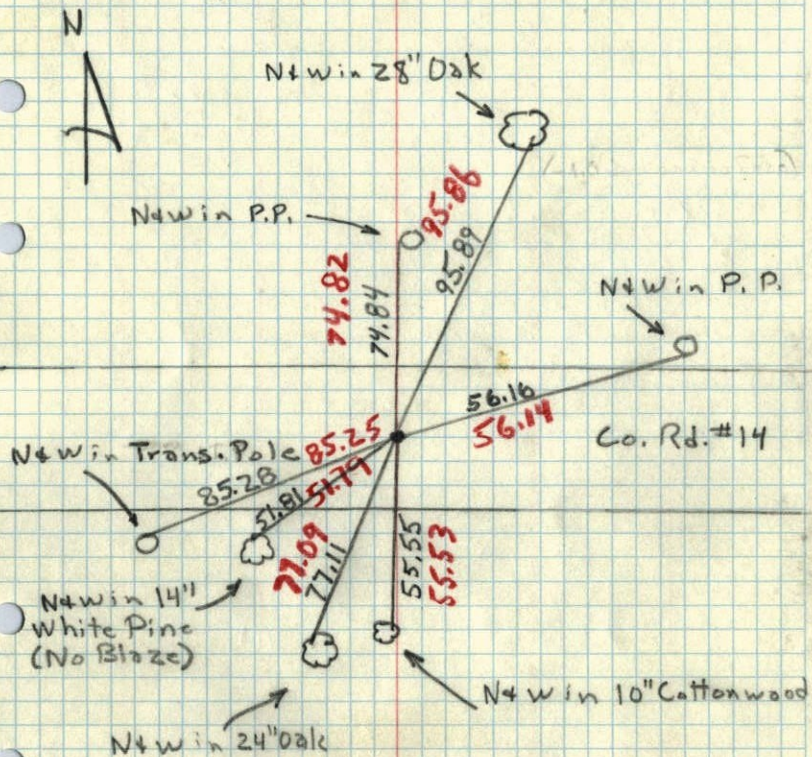 N
N&W in 28" Oak
N&W in P.P.
95.86
95.89
74.82
74.84
N&W in P.P.
56.16
56.14
Co. Rd. #14
N&W in Trans. Pole
85.25
85.28
51.79
51.81
77.09
77.11
55.55
55.53
N&W in 14"
White Pine
(No Blaze)
N&W in 10" Cottonwood
N&W in 24" Oak